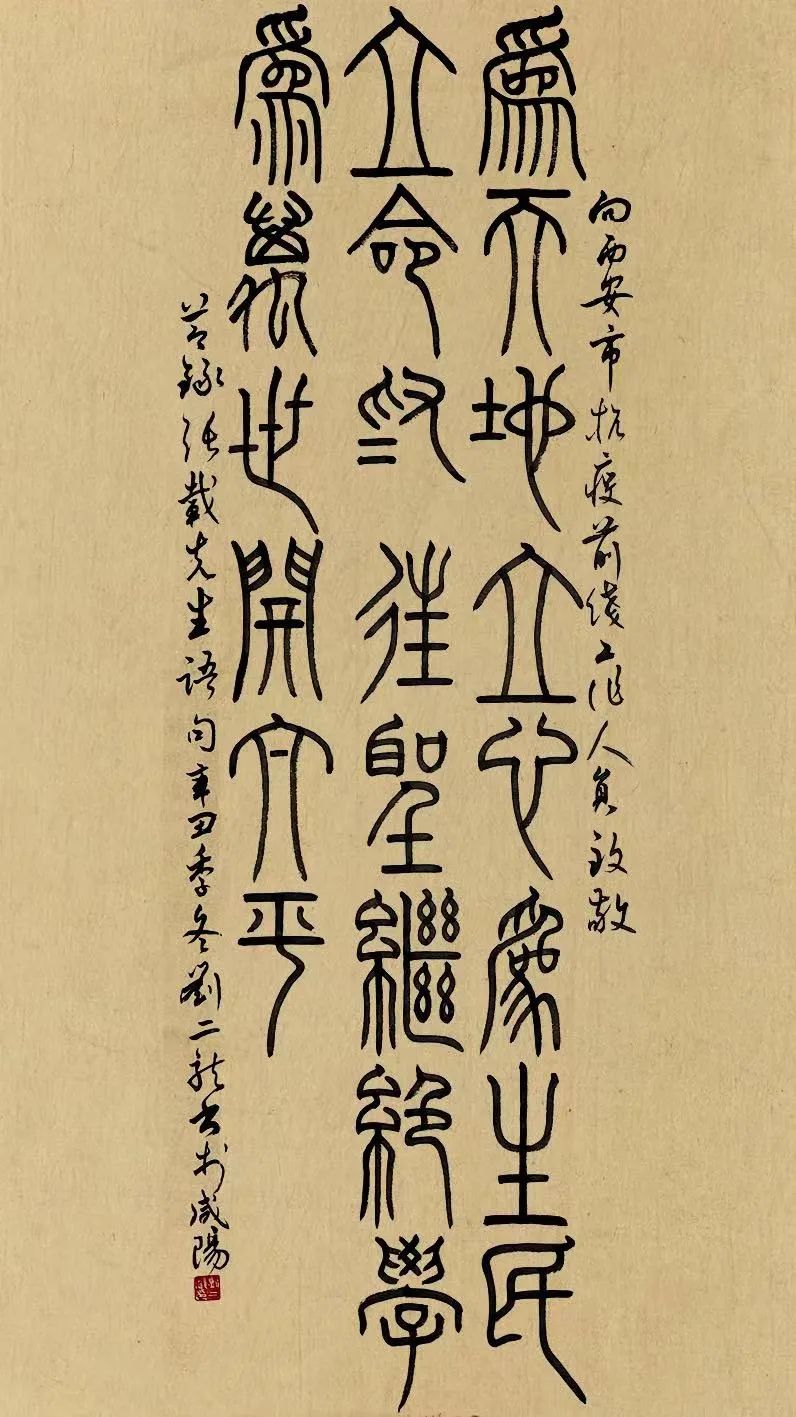 向西安市抗疫前线工作人员致敬
為天地立心為生民
立命為往聖繼絕學
為萬世開太平
節錄張載先生語句辛丑季冬劉二龍書於咸陽